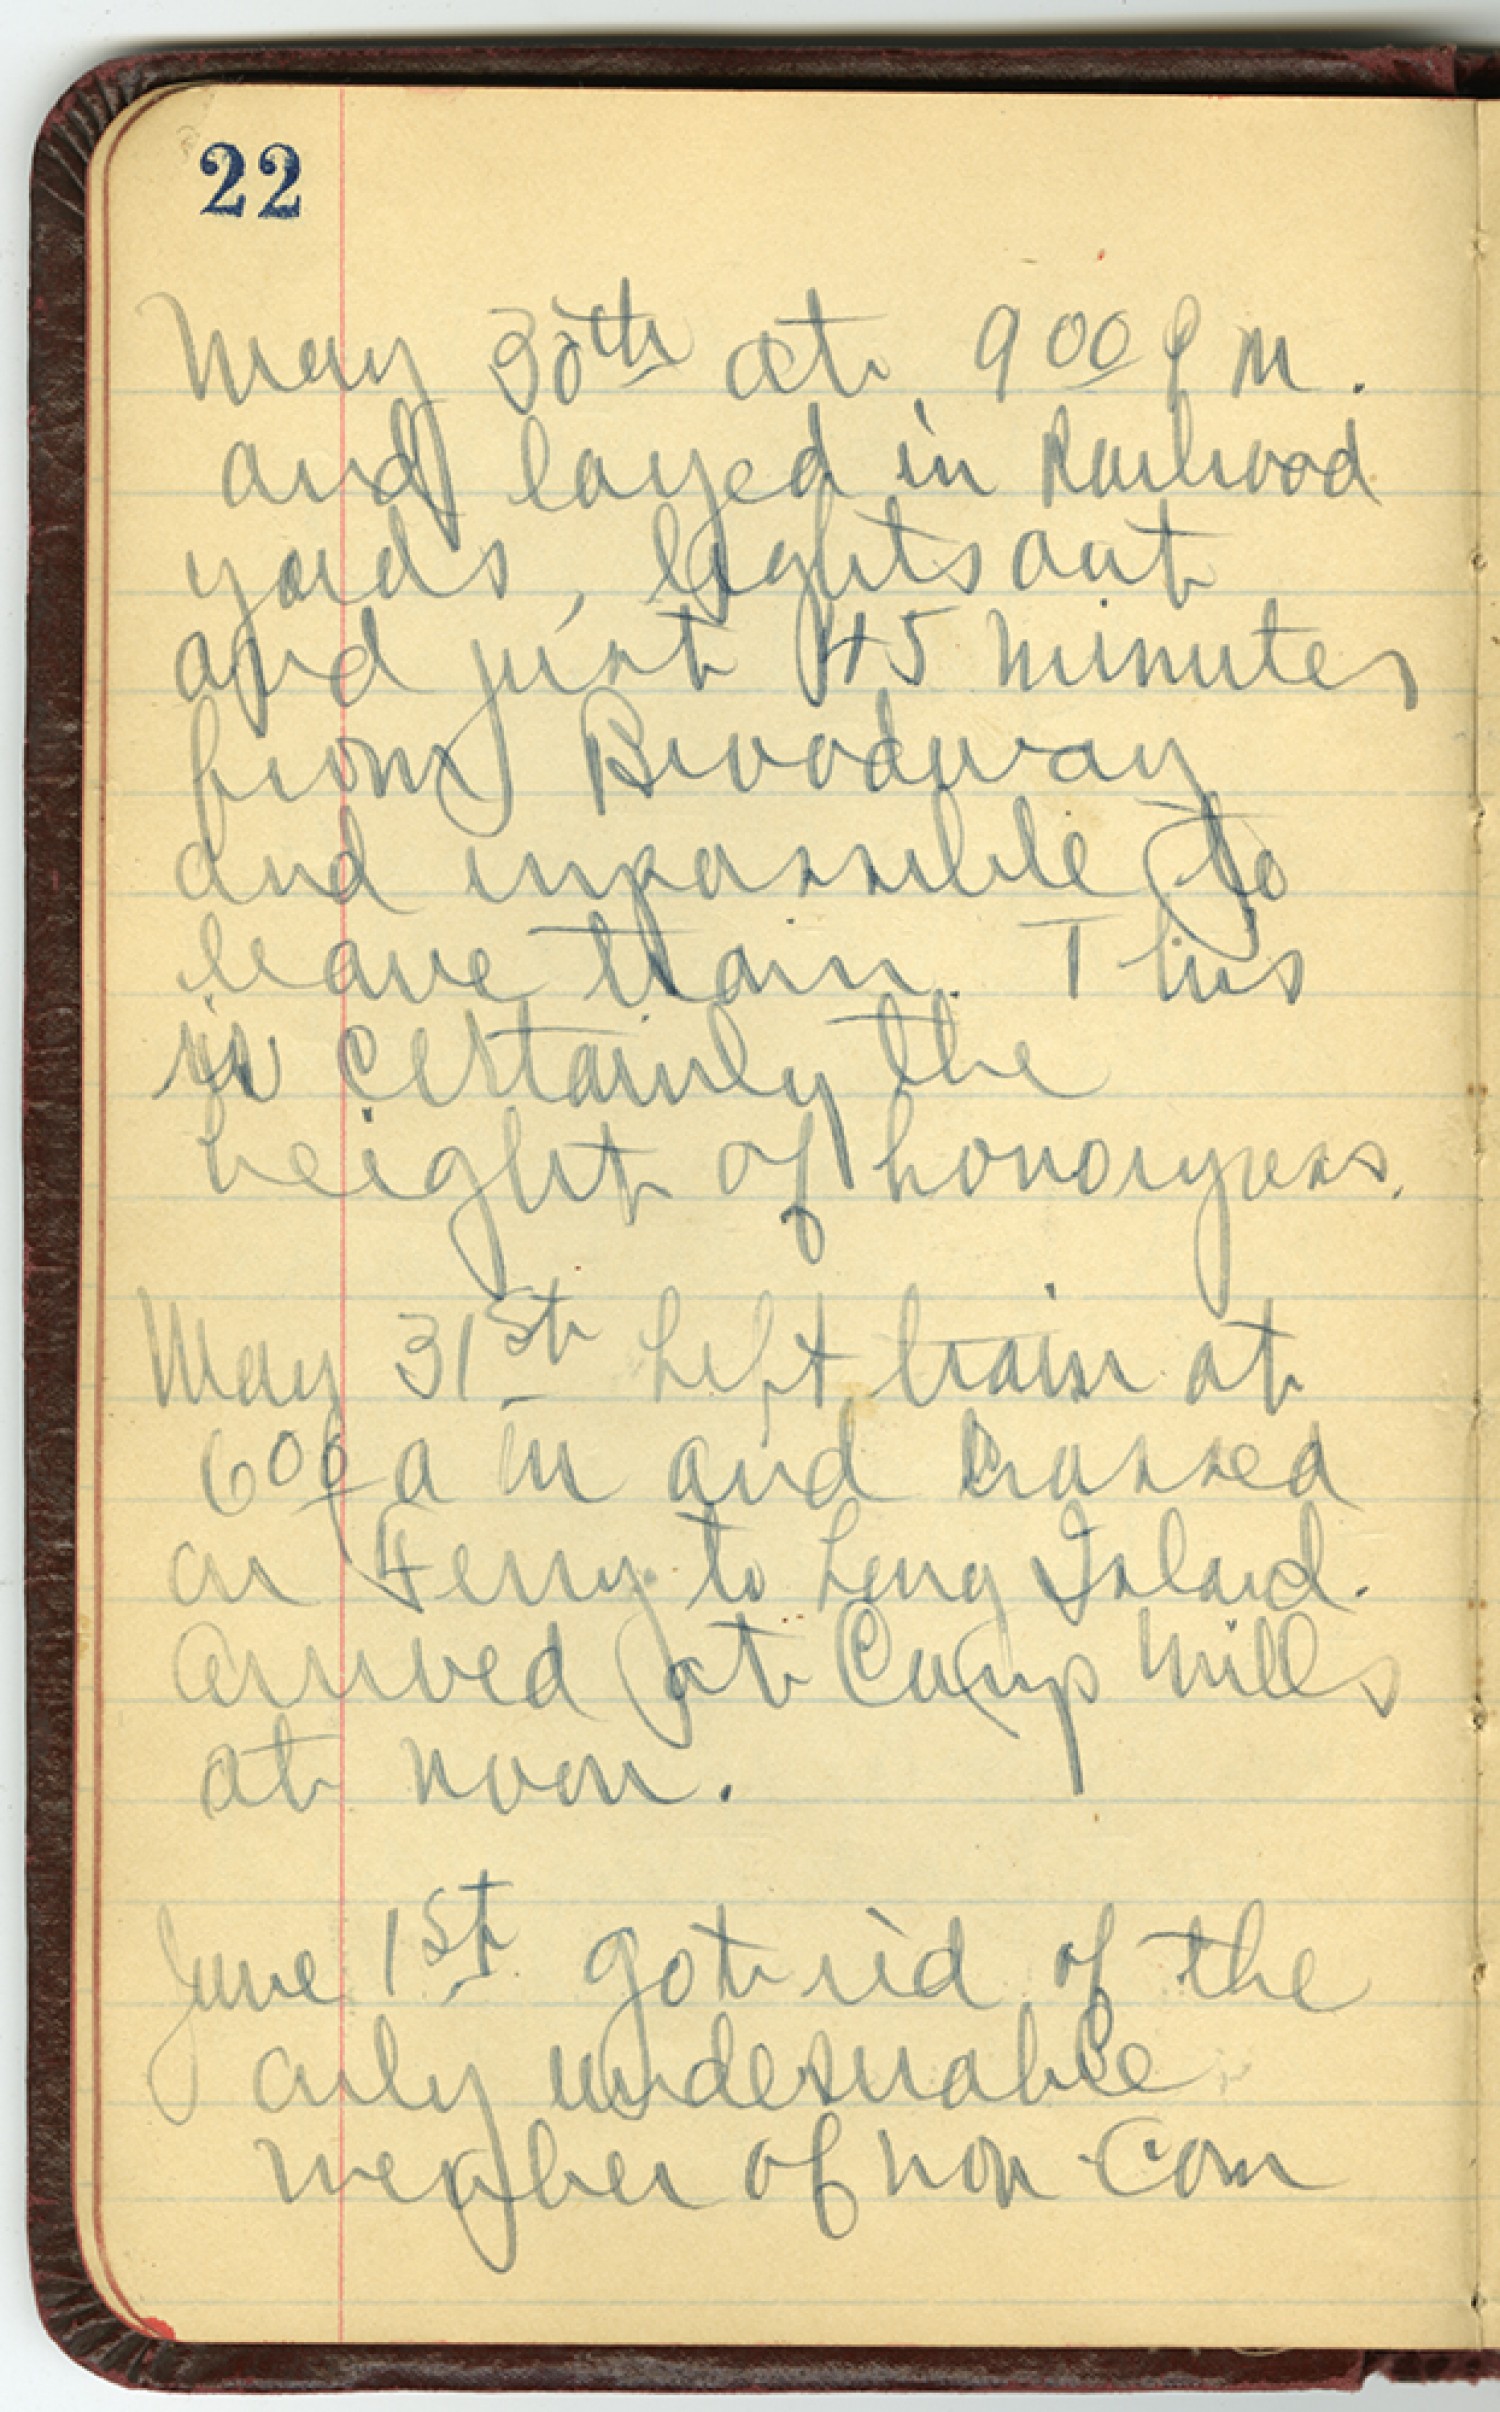 22
May 30th at 9 00 P M.
and layed in Railroad
yards, lights out
and just 45 minutes
from Broadway
and impossible to
leave train. This
is certainly the
height of
May 31st Left train at
6 00 a m and crossed
on Ferry to Long Island.
Arrived at Camp Mills
at noon.
June 1st Got rid of the
only undesirable
member of non-Com